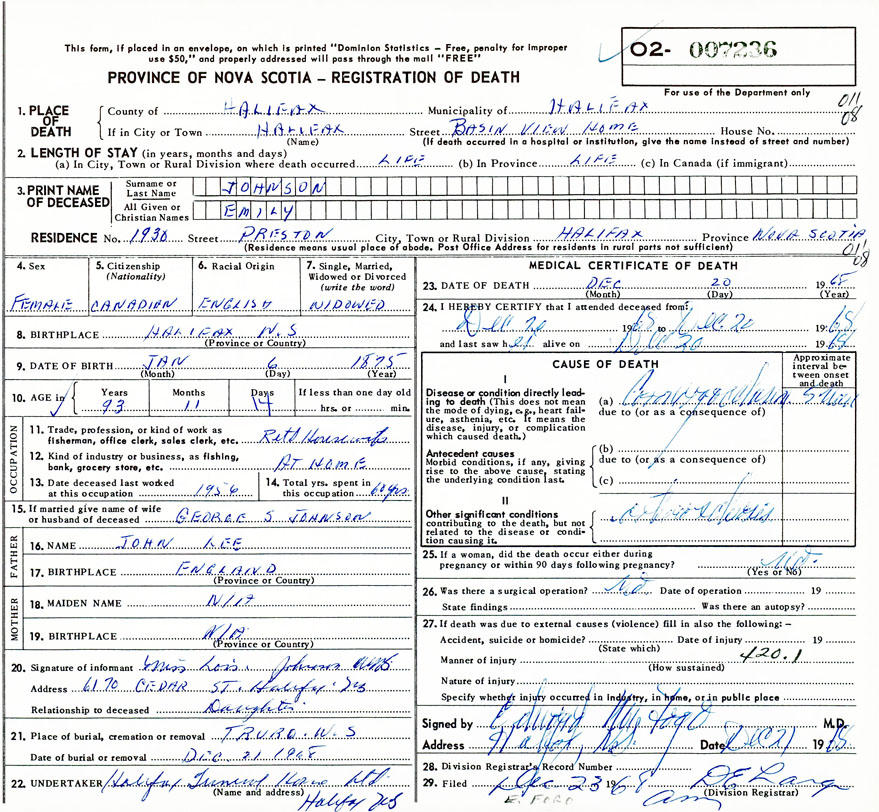 This form, if placed in an envelope, on which is printed "Dominion Statistics – Free, penalty for improper
use $50," and properly addressed will pass through the mail "FREE"
PROVINCE OF NOVA SCOTIA – REGISTRATION OF DEATH
02- 007236
For use of the Department only
011
08
1. PLACE OF DEATH
County of HALIFAX Municipality of HALIFAX
If in City or Town HALIFAX Street BASIN VIEW HOME House No.
(Name) (If death occurred in a hospital or institution, give the name instead of street and number)
2. LENGTH OF STAY (in years, months and days)
(a) In City, Town or Rural Division where death occurred LIFE (b) In Province LIFE (c) In Canada (if immigrant)
3. PRINT NAME OF DECEASED
Surname or Last Name JOHNSON
All Given or Christian Names EMILY
RESIDENCE No. 1930 Street PRESTON City, Town or Rural Division HALIFAX Province NOVA SCOTIA
(Residence means usual place of abode. Post Office Address for residents in rural parts not sufficient)
011
08
4. Sex
FEMALE
5. Citizenship (Nationality)
CANADIAN
6. Racial Origin
ENGLISH
7. Single, Married, Widowed or Divorced (write the word)
WIDOWED
8. BIRTHPLACE HALIFAX N.S
(Province or Country)
9. DATE OF BIRTH JAN 6 1875
(Month) (Day) (Year)
10. AGE in
Years 93
Months 11
Days 14
If less than one day old
hrs. or min.
OCCUPATION
11. Trade, profession, or kind of work as fisherman, office clerk, sales clerk, etc. Retd Housewife
12. Kind of industry or business, as fishing, bank, grocery store, etc. AT HOME
13. Date deceased last worked at this occupation 1956
14. Total yrs. spent in this occupation 60 yrs
15. If married give name of wife or husband of deceased GEORGE S JOHNSON
FATHER
16. NAME JOHN LEE
17. BIRTHPLACE ENGLAND
(Province or Country)
MOTHER
18. MAIDEN NAME N/A
19. BIRTHPLACE N/A
(Province or Country)
20. Signature of informant Miss Lois Johnson
Address 6170 CEDAR ST. Halifax NS
Relationship to deceased Daughter
21. Place of burial, cremation or removal TRURO. N.S
Date of burial or removal DEC 21 1968
22. UNDERTAKER Halifax Funeral Home Ltd
(Name and address) Halifax NS
MEDICAL CERTIFICATE OF DEATH
23. DATE OF DEATH DEC 20 1968
(Month) (Day) (Year)
24. I HEREBY CERTIFY that I attended deceased from:
Dec 20 1968 to Dec. 20 1968
and last saw her alive on Dec 20 1968
CAUSE OF DEATH
Approximate interval between onset and death
I
Disease or condition directly leading to death (This does not mean the mode of dying, e.g., heart failure, asthenia, etc. It means the disease, injury, or complication which caused death.)
(a) Coronary occlusion
due to (or as a consequence of)
Antecedent causes
Morbid conditions, if any, giving rise to the above cause, stating the underlying condition last.
(b)
due to (or as a consequence of)
(c)
II
Other significant conditions
contributing to the death, but not related to the disease or condition causing it.
arteriosclerosis
25. If a woman, did the death occur either during pregnancy or within 90 days following pregnancy? No.
(Yes or No)
26. Was there a surgical operation? No Date of operation 19
State findings Was there an autopsy?
27. If death was due to external causes (violence) fill in also the following: –
Accident, suicide or homicide? Date of injury 19
(State which)
Manner of injury 420.1
(How sustained)
Nature of injury
Specify whether injury occurred in industry, in home, or in public place
Signed by M.D.
Address Halifax, N.S. Date Dec 21 1968
28. Division Registrar's Record Number
29. Filed Dec 23 1968
(Division Registrar)
E. FORD